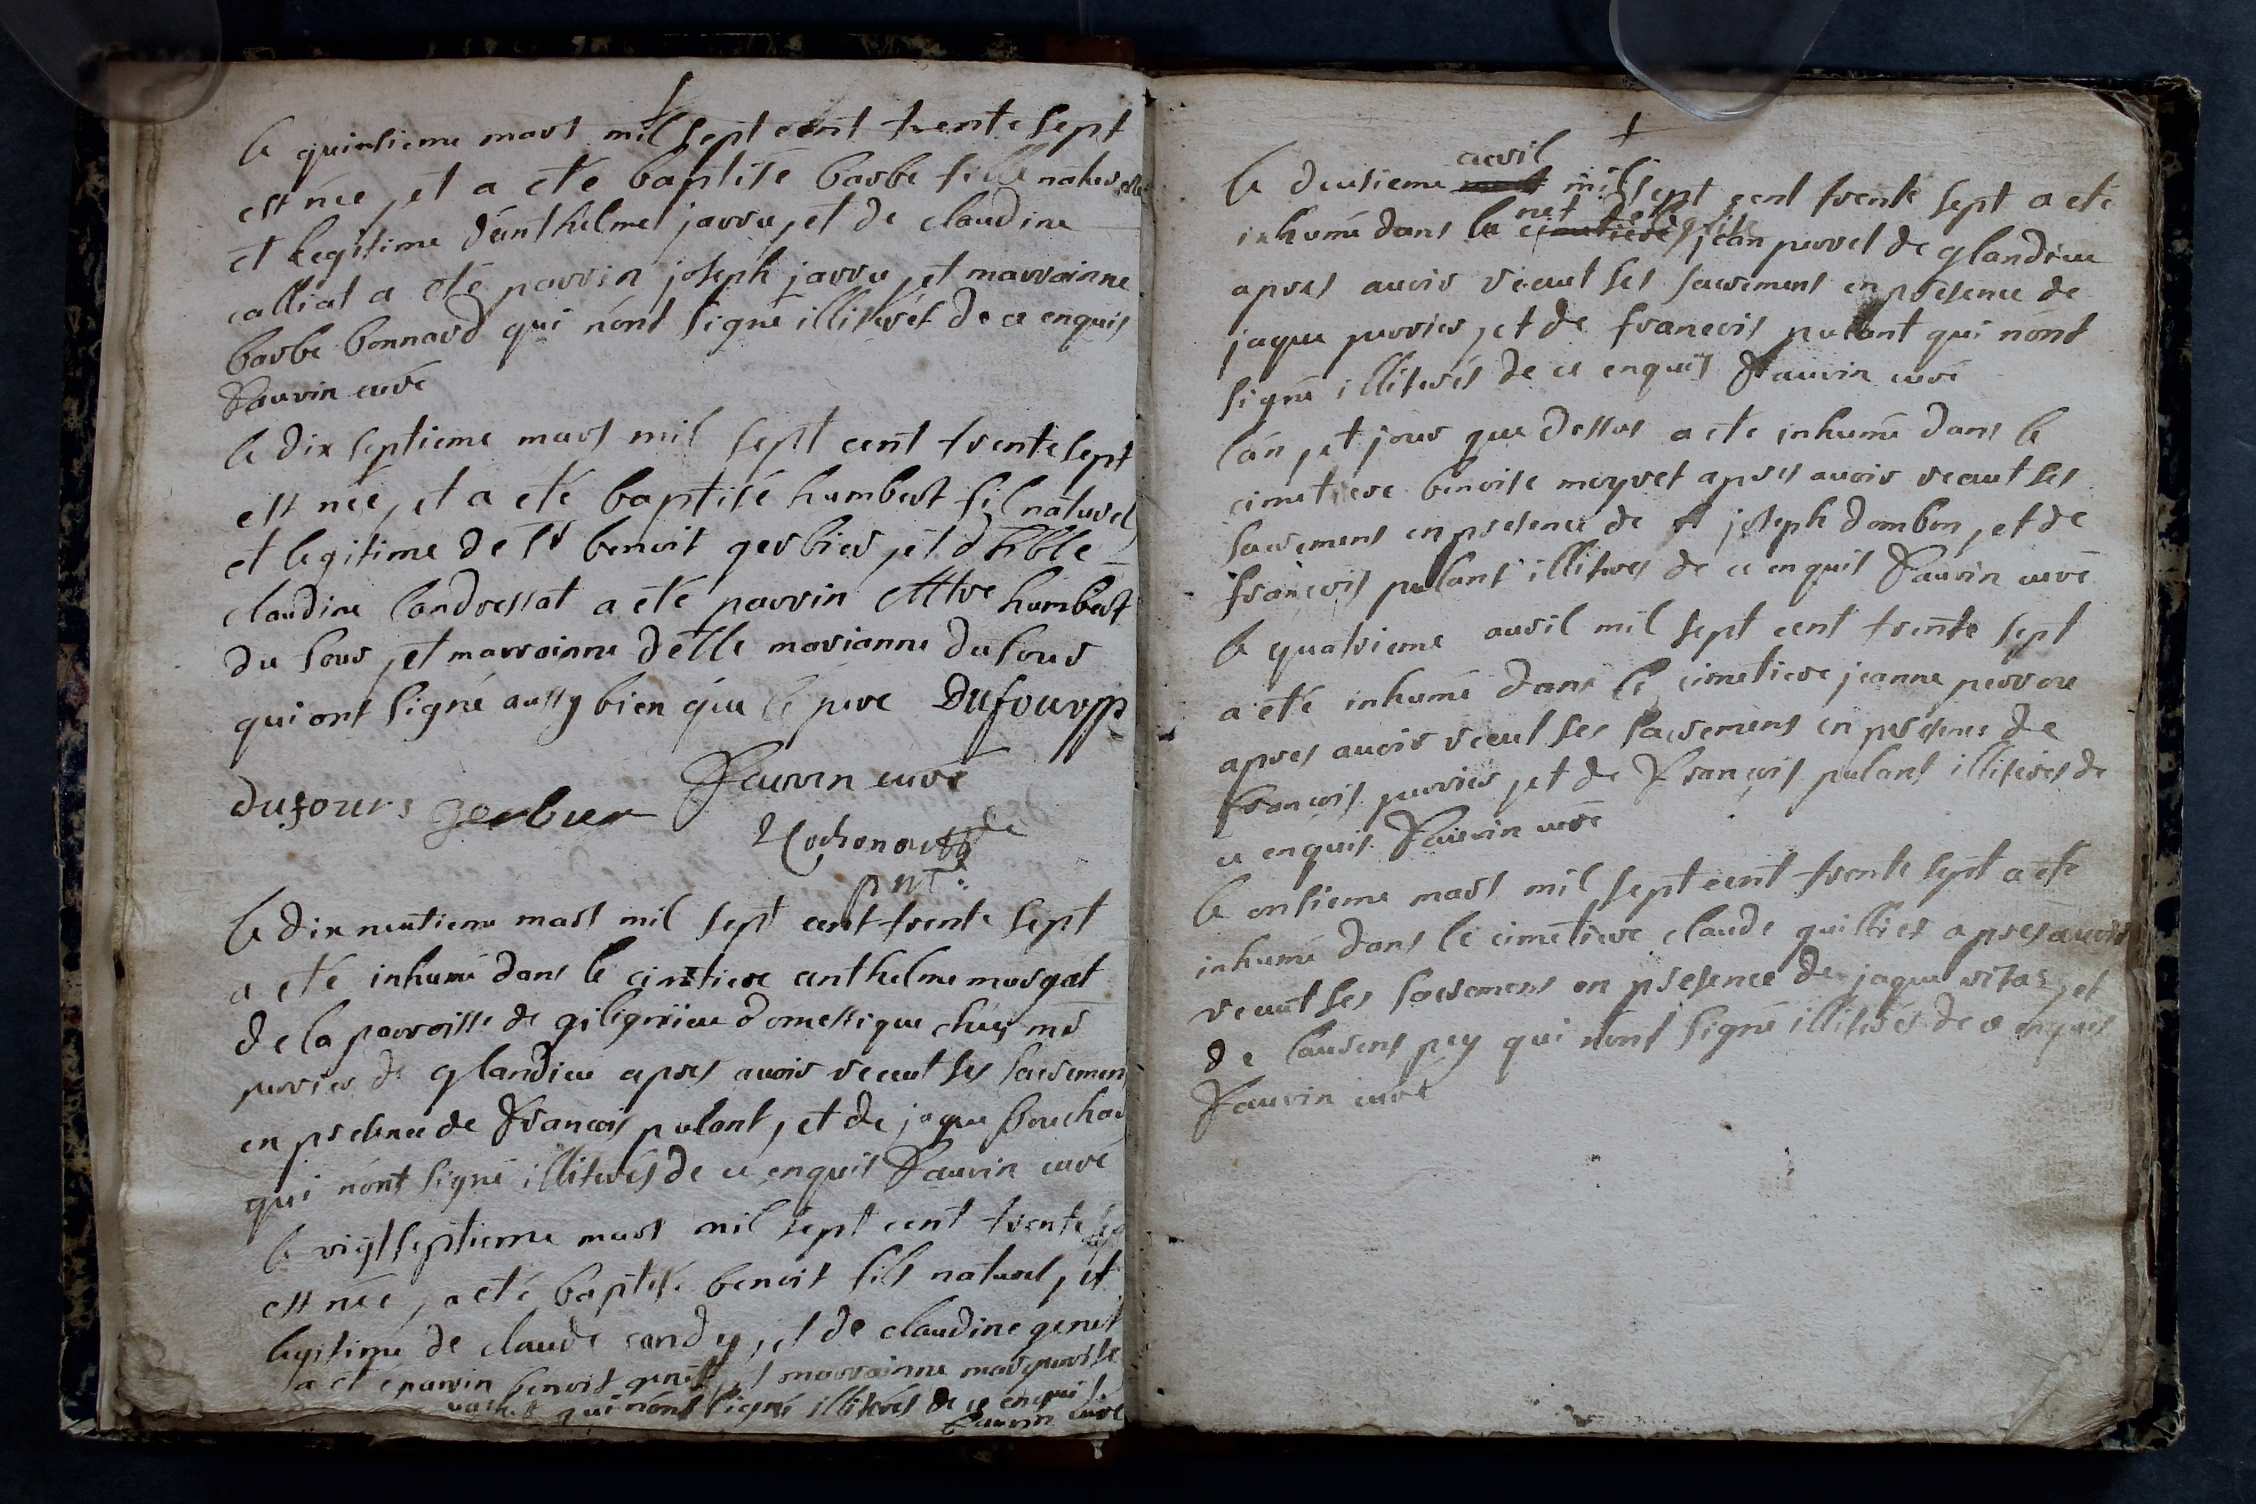 le quinsieme mars mil sept cent trente sept
est née, et a eté baptisé barbe fille naturelle
et legitime d'anthelme jarru, et de claudine
calliat a eté parrin joseph jarru, et marrainne
barbe bonnard qui n'ont signé illiterés de ce enquis
Fauvin curé
le dix septieme mars mil sept cent trente sept
est née, et a eté baptisé humbert fil naturel
et legitime de sr benoit gerbier, et d'hble
claudine landressat a eté parrin Mtre humbert
du four, et marrainne delle marianne dufour
qui ont signé aussy bien que le pere Dufour
Fauvin curé
dufour gerbier
pnt.
le dix neusieme mars mil sept cent trente sept
a eté inhumé dans le cimtiere anthelme morgat
de la parroisse de domestique chez mr
perrier de glandieu apres avoir receut ses sacremens
en presence de François pulant, et de jaque bouchar
qui n'ont signé illiterés de ce enquis Fauvin curé
le vijt septieme mars mil sept cent trente sep
est née, a eté baptisé benoit fils naturel, et
legitime de claude candy, et de claudine genet
a eté parrin benoit genet, et marrainne marguerite
vachet qui n'ont signé illiterés de ce enquis
Fauvin curé
avril
le deusieme mil sept cent trente sept a eté
inhumé dans la nef de leglise jean perret de glandieu
apres avoir receut ses sacremens en presence de
jaque perrier, et de francois pulant qui n'ont
signé illiterés de ce enquis Fauvin curé
l'an, et jour que dessus a eté inhumé dans le
cimetiere benoite meyret apres avoir receut ses
sacremens en presence de joseph dombon, et de
françois pulant illiteres de ce enquis Fauvin curé
le quatrieme avril mil sept cent trente sept
a eté inhumé dans le cimetiere jeanne
apres avoir receut ses sacremens en presence de
françois perrier, et de François pulant illiterés de
ce enquis Fauvin curé
le onsieme mars mil sept cent trente sept a eté
inhumé dans le cimetiere claude quillier apres avoir
receut ses sacremens en presence de jaque vitaz, et
de laurens pey qui n'ont signé illiterés de ce enquis
Fauvin curé